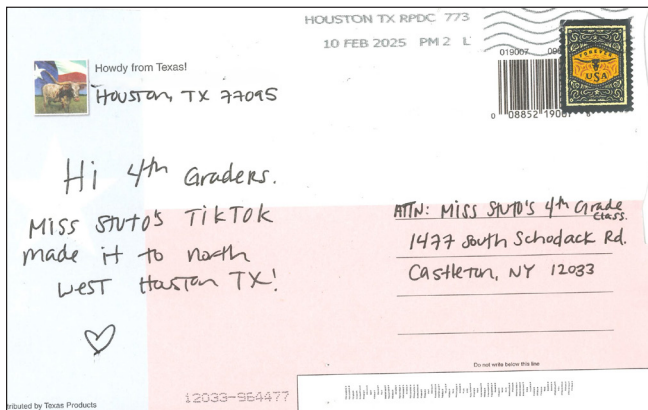 HOUSTON TX RPDC 773
10 FEB 2025 PM 2 L
FOREVER
USA
Howdy from Texas!
Houston, TX 77095
Hi 4th Graders.
Miss Stuto's TikTok
made it to north
west Houston TX!
ATTN: Miss Stuto's 4th Grade
Class.
1477 South Schodack Rd.
Castleton, NY 12033
Do not write below this line
12033-964477
tributed by Texas Products